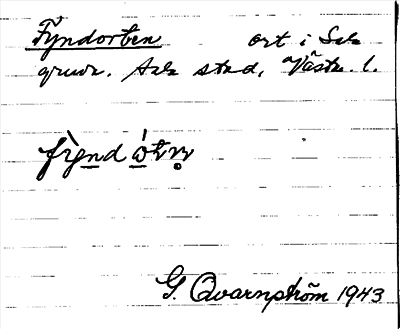 Fyndorten ort i Sala
gruva. Sala stad, Västm. l.
G. Qvarnström 1943